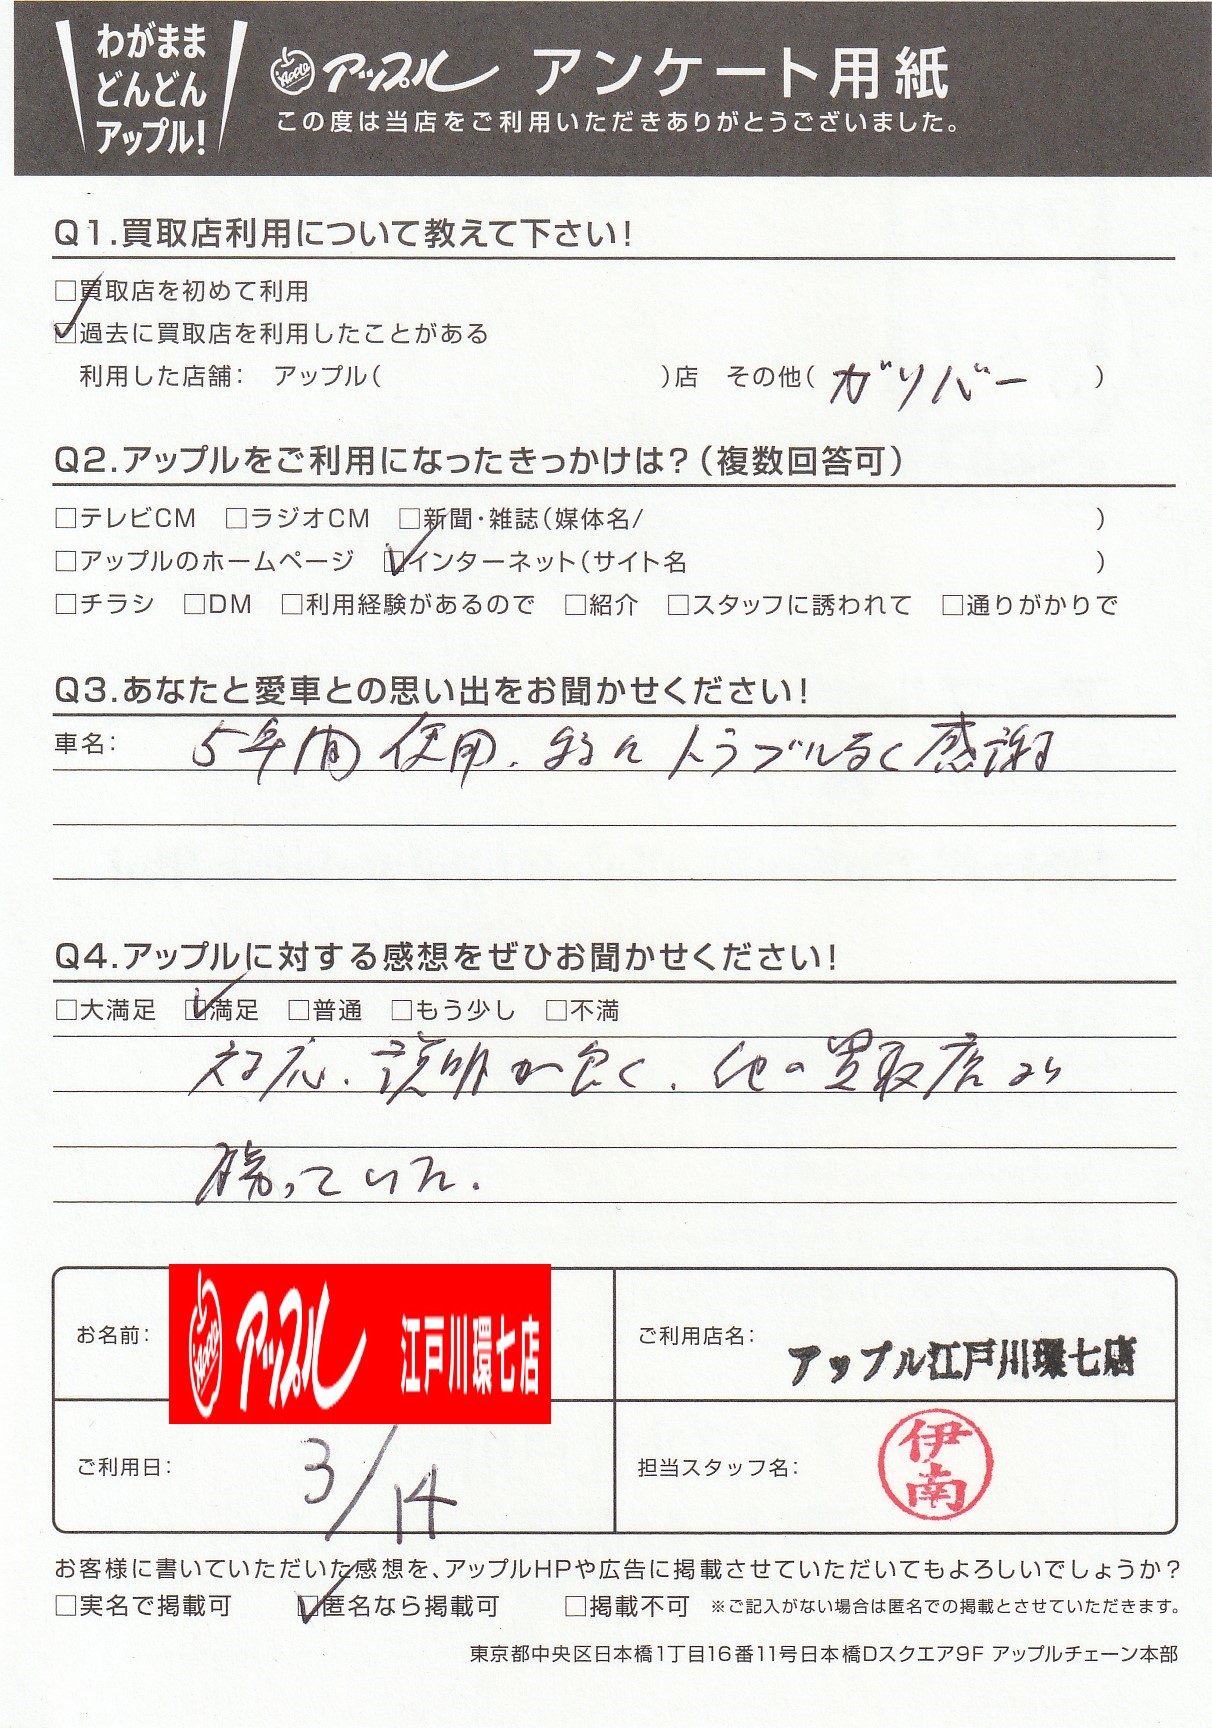 わがまま
どんどん
アップル!
Apple アップル アンケート用紙
この度は当店をご利用いただきありがとうございました。
Q1.買取店利用について教えて下さい!
□買取店を初めて利用
☑過去に買取店を利用したことがある
利用した店舗: アップル( )店 その他( ガリバー )
Q2.アップルをご利用になったきっかけは?(複数回答可)
□テレビCM □ラジオCM □新聞・雑誌(媒体名/ )
□アップルのホームページ ☑インターネット(サイト名 )
□チラシ □DM □利用経験があるので □紹介 □スタッフに誘われて □通りがかりで
Q3.あなたと愛車との思い出をお聞かせください!
車名: 5年間使用、特にトラブルなく感謝
Q4.アップルに対する感想をぜひお聞かせください!
□大満足 ☑満足 □普通 □もう少し □不満
対応、説明が良く、他の買取店より
勝っていた。
お名前: Apple アップル 江戸川環七店
ご利用店名: アップル江戸川環七店
ご利用日: 3/14
担当スタッフ名: 伊南
お客様に書いていただいた感想を、アップルHPや広告に掲載させていただいてもよろしいでしょうか?
□実名で掲載可 ☑匿名なら掲載可 □掲載不可 ※ご記入がない場合は匿名での掲載とさせていただきます。
東京都中央区日本橋1丁目16番11号日本橋Dスクエア9F アップルチェーン本部